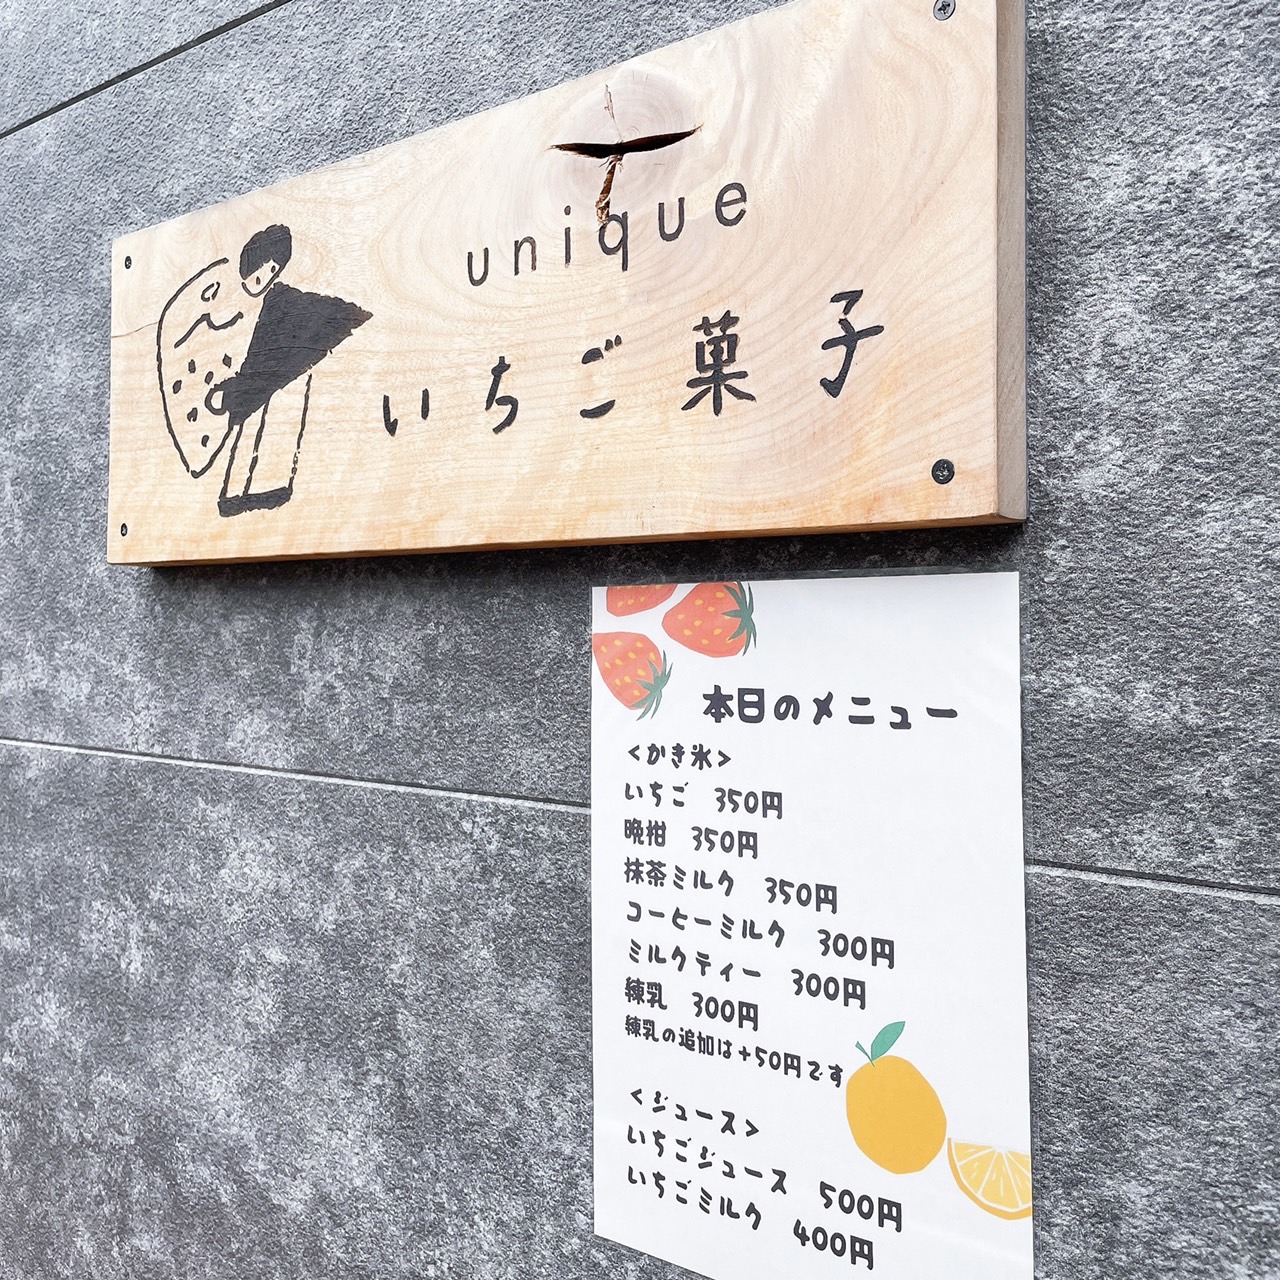 unique
いちご菓子
本日のメニュー
<かき氷>
いちご 350円
晩柑 350円
抹茶ミルク 350円
コーヒーミルク 300円
ミルクティー 300円
練乳 300円
練乳の追加は+50円です
<ジュース>
いちごジュース 500円
いちごミルク 400円